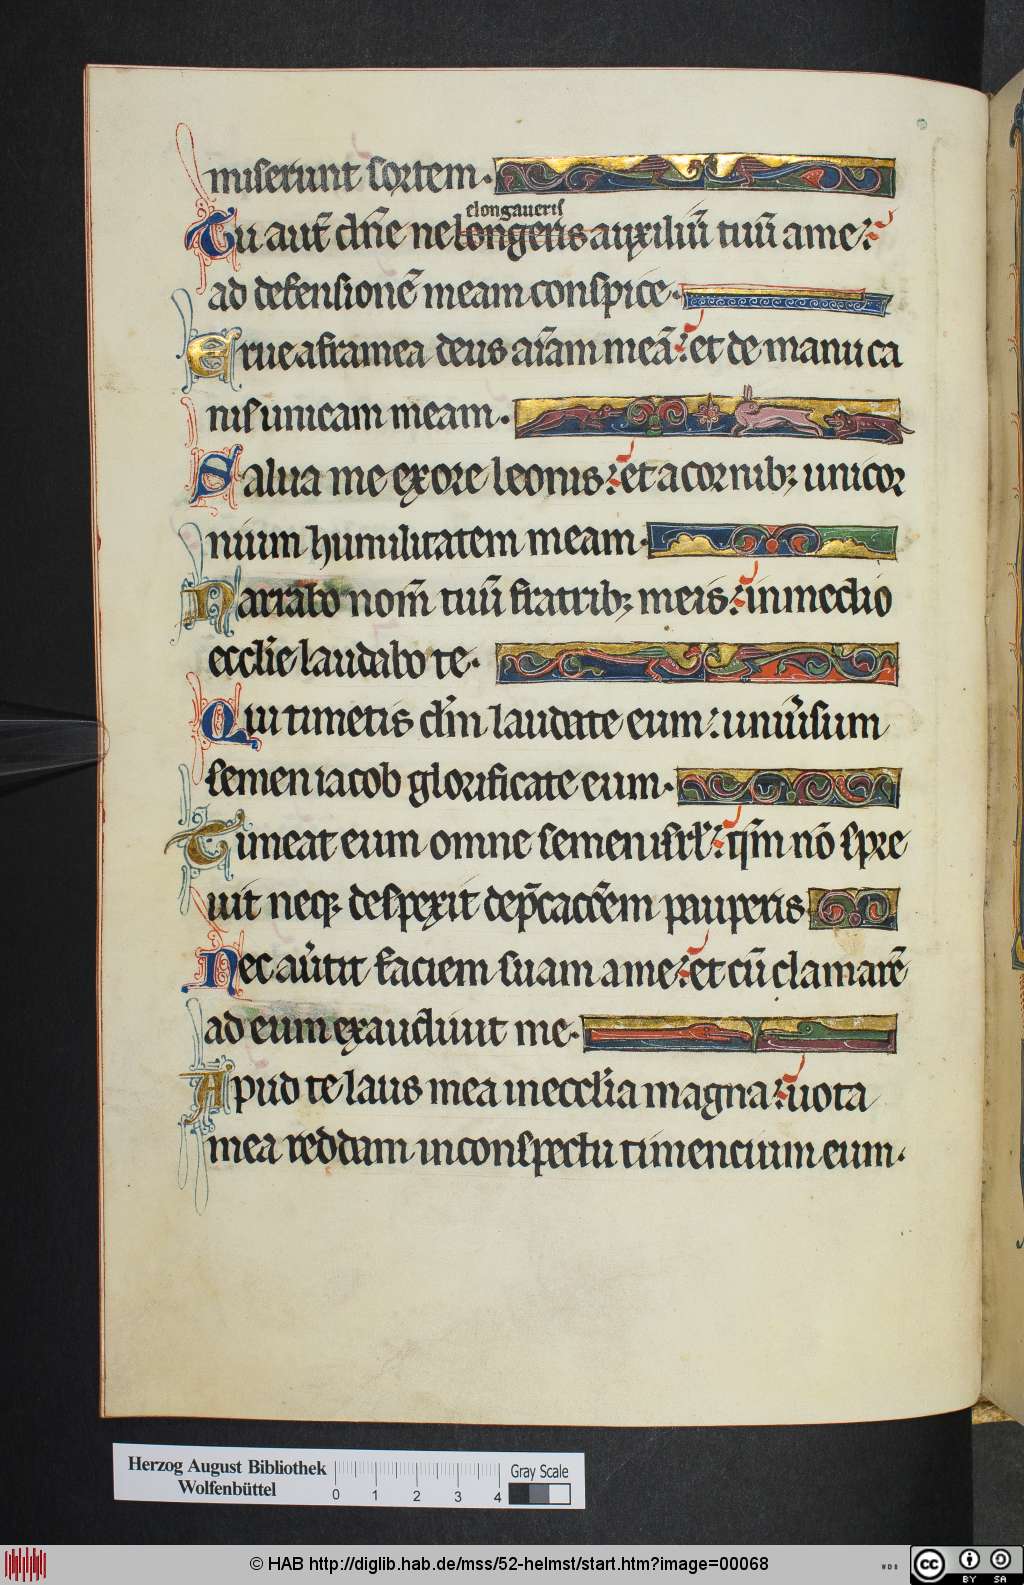 miserunt sortem.
elongaueris
Tu aut̄ dn̄e ne longeris auxiliū tuū a me:
ad defensionē meam conspice.
Erue a framea deus aīam meā: et de manu ca
nis unicam meam.
Salua me ex ore leonis: et a cornibꝫ unicor
nium humilitatem meam.
Narrabo nom̄ tuū fratribꝫ meis: in medio
eccl̄ie laudabo te.
Qui timetis dn̄m laudate eum: uniu̾sum
semen iacob glorificate eum.
Timeat eum omne semen isrl̄: qm̄ nō spre
uit neqꝫ despexit dep̄cacōem pauperis
Nec au̾tit faciem suam a me: et cū clamarē
ad eum exaudiuit me.
Apud te laus mea in eccl̄ia magna: uota
mea reddam in conspectu timencium eum.
Herzog August Bibliothek
Wolfenbüttel
0 1 2 3 4
Gray Scale
© HAB http://diglib.hab.de/mss/52-helmst/start.htm?image=00068
WDB
cc BY SA